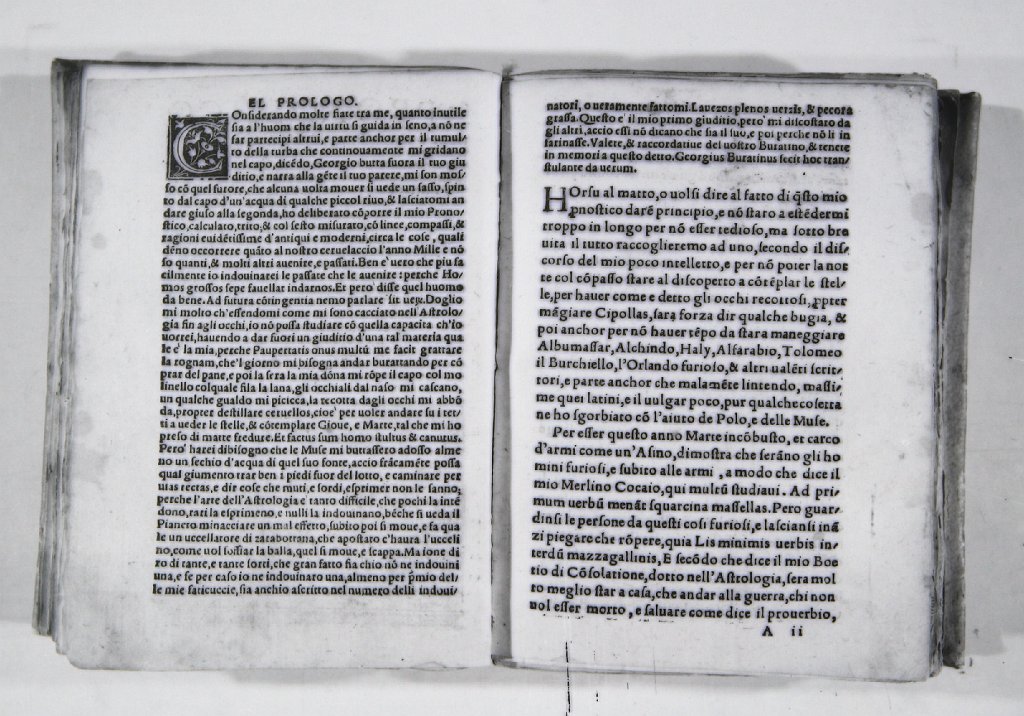 EL PROLOGO.
COnsiderando molte fiate tra me, quanto inutile
sia a l'huom che la uirtu si guida in seno, a nõ ne
far partecipi altrui, e parte anchor per il rumul/
to della turba che continouamente mi gridano
nel capo, dicẽdo, Georgio butta fuora il tuo giu
ditio, e narra alla gẽte il tuo parere, mi son mos/
so cõ quel furore, che alcuna uolta mouer si uede un sasso, spin
to dal capo d'un'acqua di qualche piccol riuo, & lasciatomi an
dare giuso alla segonda, ho deliberato cõporre il mio Prono/
stico, calculato, trito, & col sesto misurato, cõ linee, compassi, &
ragioni euidẽtissime d'antiqui e moderni, circa le cose, quali
dẽno occorrere quãto al nostro ceruelaccio l'anno Mille e nõ
so quanti, & molti altri auenire, e passati. Ben e' uero che piu fa
cilmente io indouinarei le passate che le auenire: perche Ho/
mos grossos sepe fauellat indarnos. Et pero' disse quel huomo
da bene. Ad futura cõtingentia nemo parlare sit ueμ. Doglio
mi molto ch'essendomi come mi sono cacciato nell'Astrolo/
gia fin agli occhi, io nõ possa studiare cõ quella capacita ch'io
uorrei, hauendo a dar fuori un giuditio d'una tal materia qua
le e' la mia, perche Paupertatis onus multũ me facit grattare
la rognam, che'l giorno mi bisogna andar burattando per cõ
prar del pane, e poi la sera la mia dõna mi rõpe il capo col mo
linello colquale fila la lana, gli occhiali dal naso mi cascano,
un qualche gualdo mi picicca, la recotta dagli occhi mi abbõ
da, propter destillare ceruellos, cioe' per uoler andare su i tet/
ti a ueder le stelle, & cõtemplare Gioue, e Marte, tal che mi ho
preso di matte fredure. Et factus sum homo stultus & canutus.
Pero' harei dibisogno che le Muse mi buttassero adosso alme
no un sechio d'acqua di quel suo fonte, accio frãcamẽte possa
qual giumento trar ben i piedi fuor del loto, e caminare per
uias rectas, e dir cose che muti, e sordi, esprimer non le sanno;
perche l'arte dell'Astrologia e tanto difficile, che pochi la intẽ
dono, rari la esprimeno, e nulli la indouinano, bẽche si ueda il
Pianero minacciare un mal effetto, subito poi si moue, e fa qua
le un uccellarore di zarabottana, che apostato c'haura l'uccelli
no, come uol soffiar la balla, quel si moue, e scappa. Ma io ne di
ro di tante, e tante sorti, che gran fatto fia chio nõ ne indouini
una, e se per caso io ne indouinaro una, almeno per p̃mio del/
le mie faticuccie, sia anchio ascritto nel numero delli indoui/
natori, o ueramente fattomi. Lauezos plenos uerzis, & pecora
grassa. Questo e' il mio primo giuditio, pero' mi discostaro da
gli altri, accio essi nõ dicano che sia il suo, e poi perche nõ li in
farinasse. Valete, & raccordatiue del uostro Buratino, & tenete
in memori a questo detto. Georgius Buratinus fecit hoc tran/
stulante da uerum.
HOrsu al matto, o uolsi dire al fatto di q̃sto mio
ꝓnostico darẽ principio, e nõ staro a estẽdermi
troppo in longo per nõ esser tedioso, ma sotto bre
uita il tutto raccoglieremo ad uno, secondo il dis/
corso del mio poco intelletto, e per nõ poter la not
te col cõpasso stare al discoperto a cõtẽplar le stel/
le, per hauer come e detto gli occhi recottosi, ꝓpter
mãgiare Cipollas, sarà forza dir qualche bugia, &
poi anchor per nõ hauer tẽpo da stara maneggiare
Albumassar, Alchindo, Haly, Alfarabio, Tolomeo
il Burchiello, l'Orlando furioso, & altri ualẽti scrit/
tori, e parte anchor che malamẽte lintendo, massi/
me quei latini, e il uulgar poco, pur qualche cosetta
ne ho sgorbiato cõ l'aiuto de Polo, e delle Muse.
Per esser questo anno Marte incõbusto, et carco
d'armi come un'Asino, dimostra che serãno gli ho
mini furiosi, e subito alle armi, a modo che dice il
mio Merlino Cocaio, qui multũ studiaui. Ad pri/
mum uerbũ menãt squarcina massellas. Pero guar/
dinsi le persone da questi cosi furiosi, e lasciansi inã
zi piegare che rõpere, quia Lis minimis uerbis in/
terdũ mazzagallinis, E secõdo che dice il mio Boe
tio di Cõsolatione, dotto nell'Astrologia, sera mol
to meglio star a casa, che andar alla guerra, chi non
uol esser morto, e saluare come dice il prouerbio,
A ii